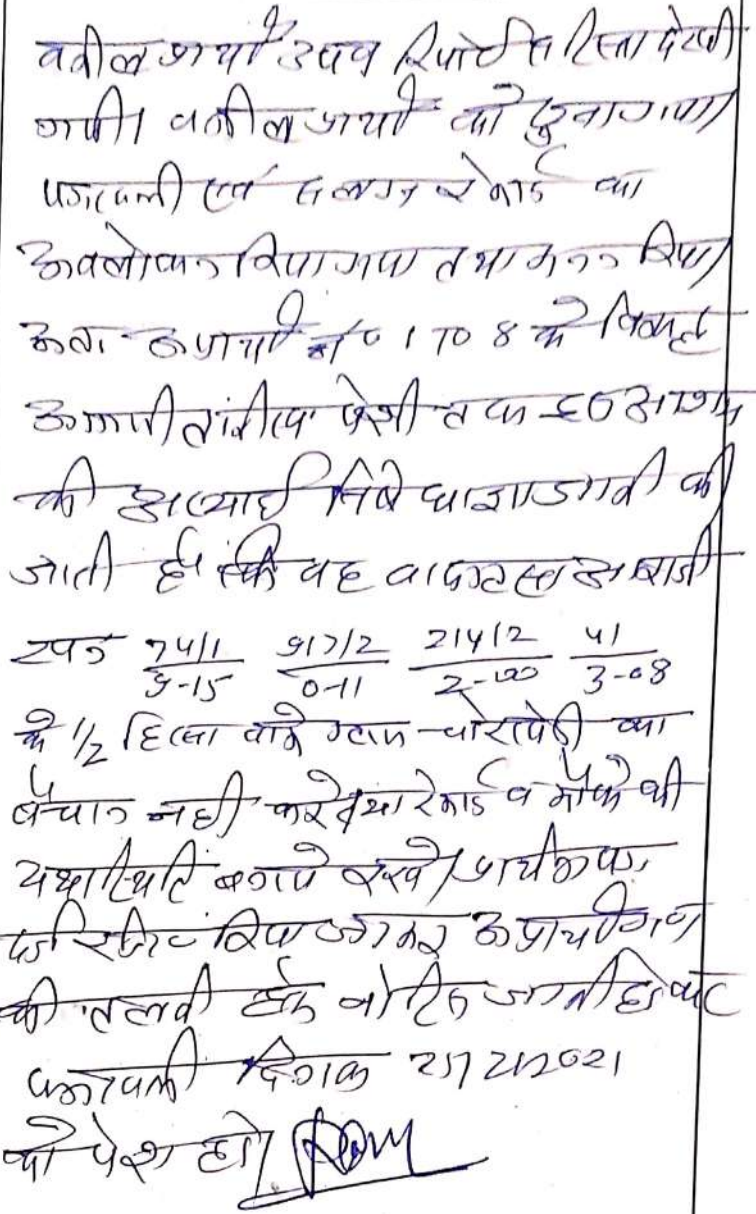 वकील प्रार्थी उपस्थित रिपोर्ट सरिस्ता देखी
गयी। वकील प्रार्थी को सुना गया।
पत्रावली एवं संलग्न रेकार्ड का
अवलोकन किया गया तथा मनन किया।
अतः अप्रार्थी सं० 1 TO 8 के विरूद्ध
आगामी तारीख पेशी तक इस आशय
की अस्थाई निषेधाज्ञा जारी की
जाती है कि वह वादग्रस्त आराजी
खसरा 74/1 / 9-15 917/2 / 0-11 214/2 / 2-00 41 / 3-08
के 1/2 हिस्सा वाके ग्राम
बेचान नही करे तथा रेकार्ड व मौके की
यथास्थिति बनाये रखे। प्रार्थना पत्र
दर्ज रजिस्टर किया जाकर अप्रार्थीगण
की तलबी हेतु नोटिस जारी हो बाद
पत्रावली दिनांक 2021
को पेश हो।